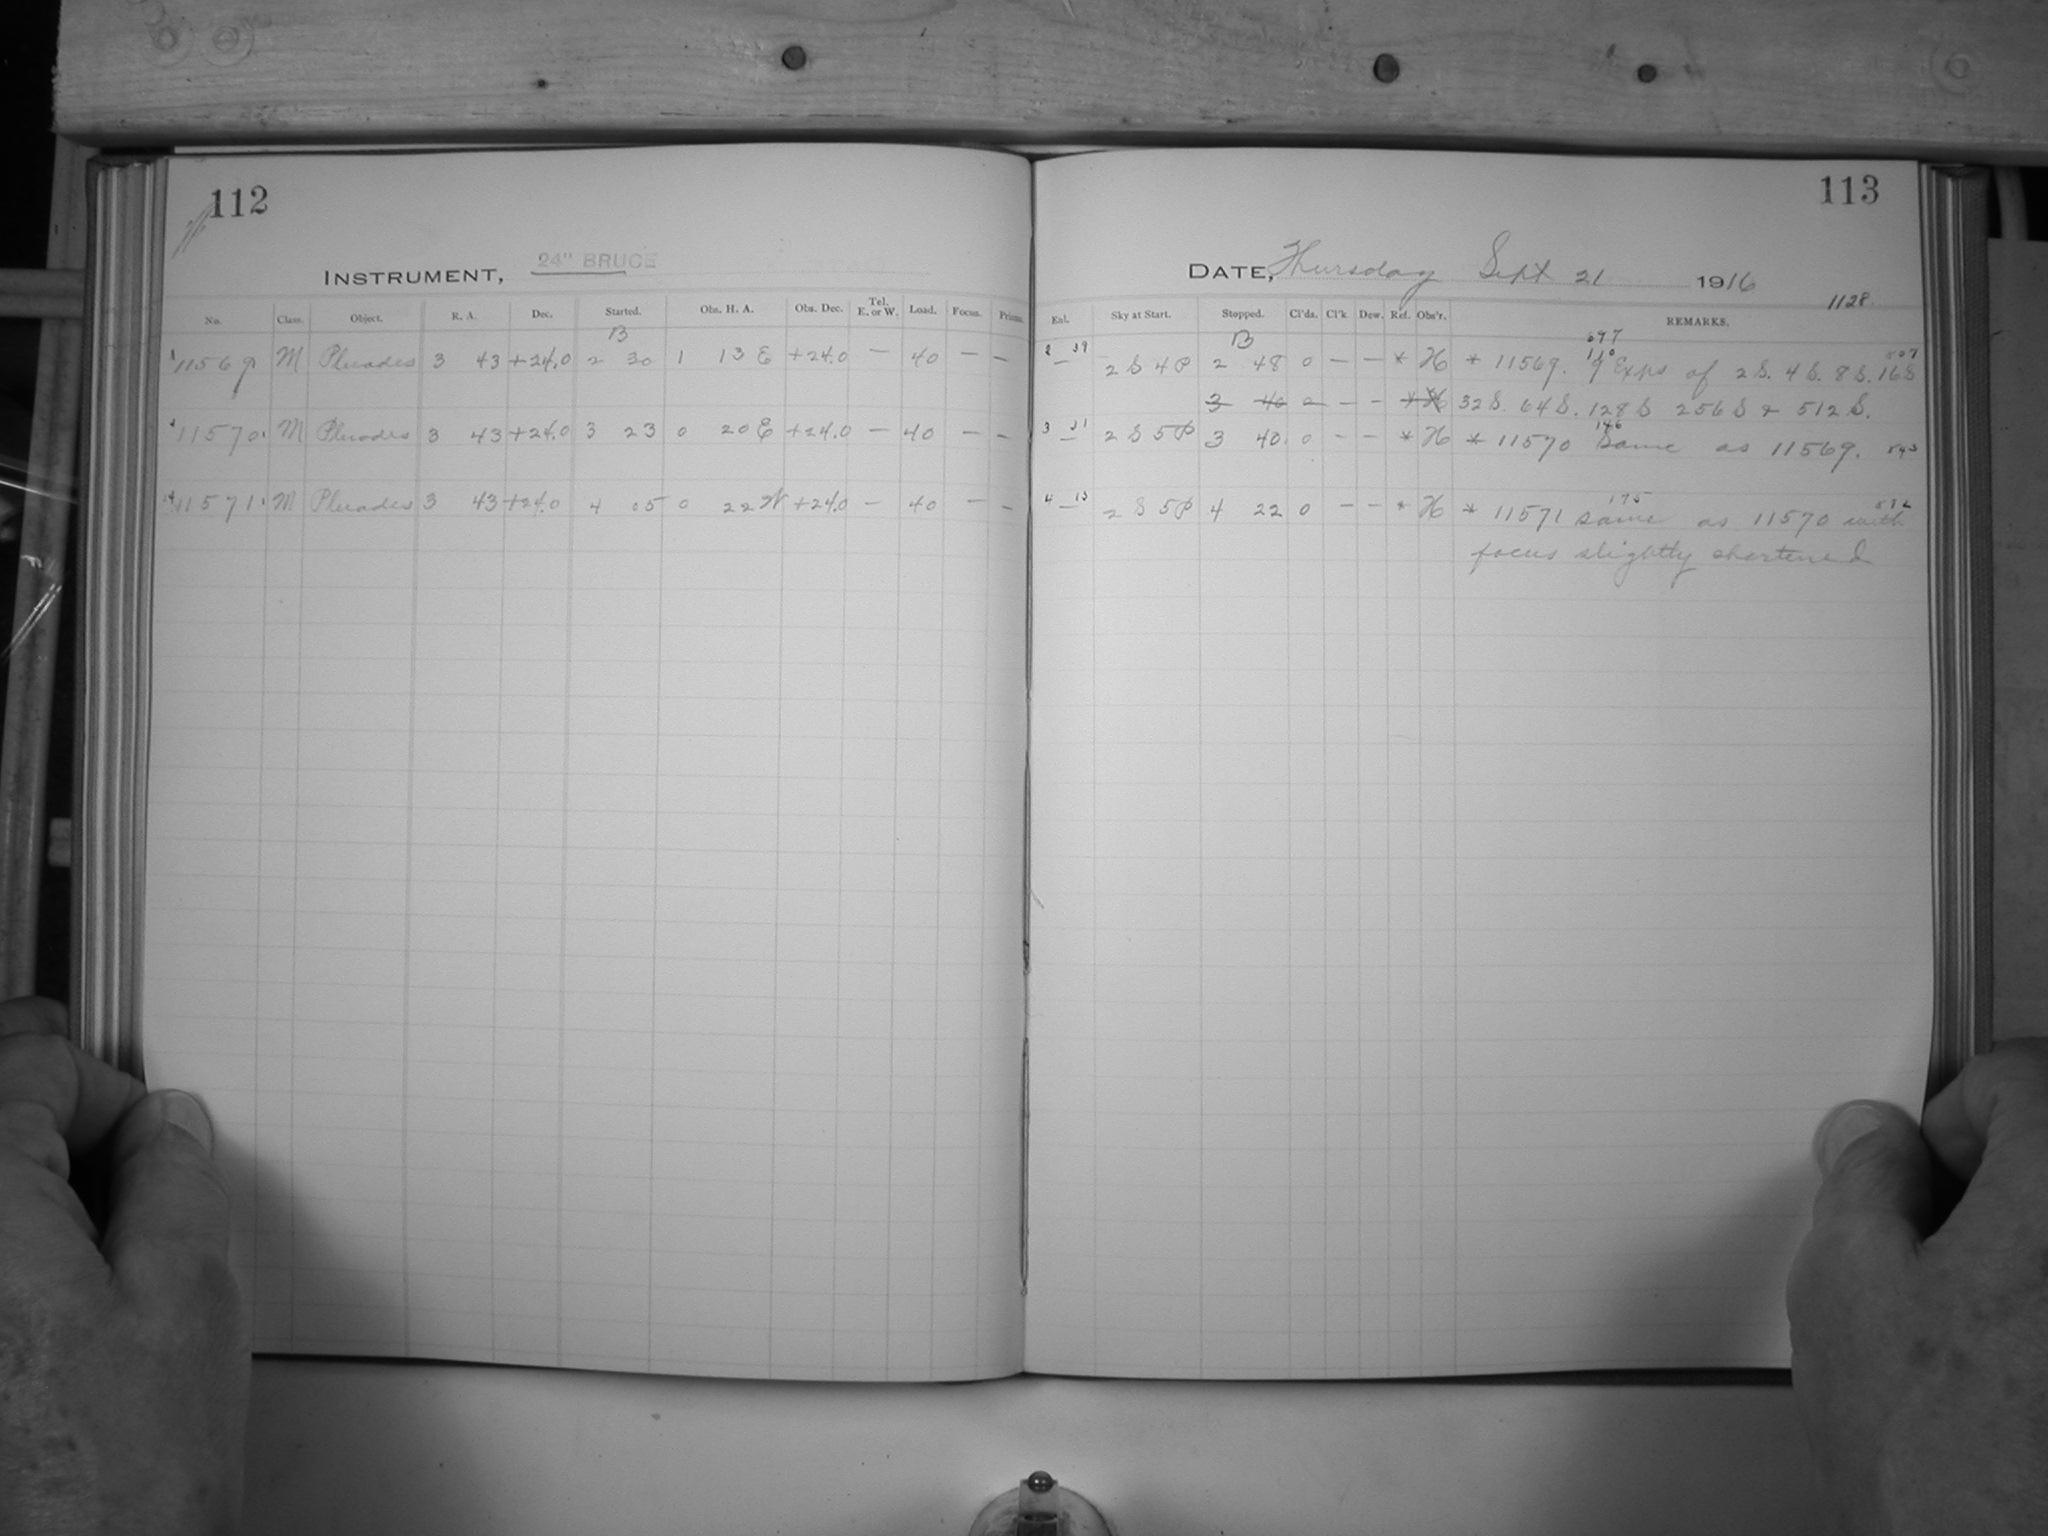 112
INSTRUMENT, 24" BRUCE
No. Class. Object. R. A. Dec. Started. Obs. H. A. Obs. Dec. Tel. E. or W. Load. Focus. Prisms.
B
11569 M Pleiades 3 43 +24.0 2 30 1 13 E +24.0 — 40 — —
11570. M Pleiades 3 43 +24.0 3 23 0 20 E +24.0 — 40 — —
11571. M Pleiades 3 43 +24.0 4 05 0 22 W +24.0 — 40 — —
113
DATE, Thursday Sept 21 1916
1128
Enl. Sky at Start. Stopped. Cl'ds. Cl'k Dew. Ref. Obs'r. REMARKS.
B 697
2 39 110 507
— 2 S 4 P 2 48 0 — — * H * 11569. 9 Exps of 2 S. 4 S. 8 S. 16 S
3 40 0 — — * H 32 S. 64 S. 128 S 256 S & 512 S.
3 31 146
— 2 S 5 P 3 40 0 — — * H * 11570 Same as 11569.
4 13 175
— 2 S 5 P 4 22 0 — — * H * 11571 same as 11570 with
focus slightly shortened